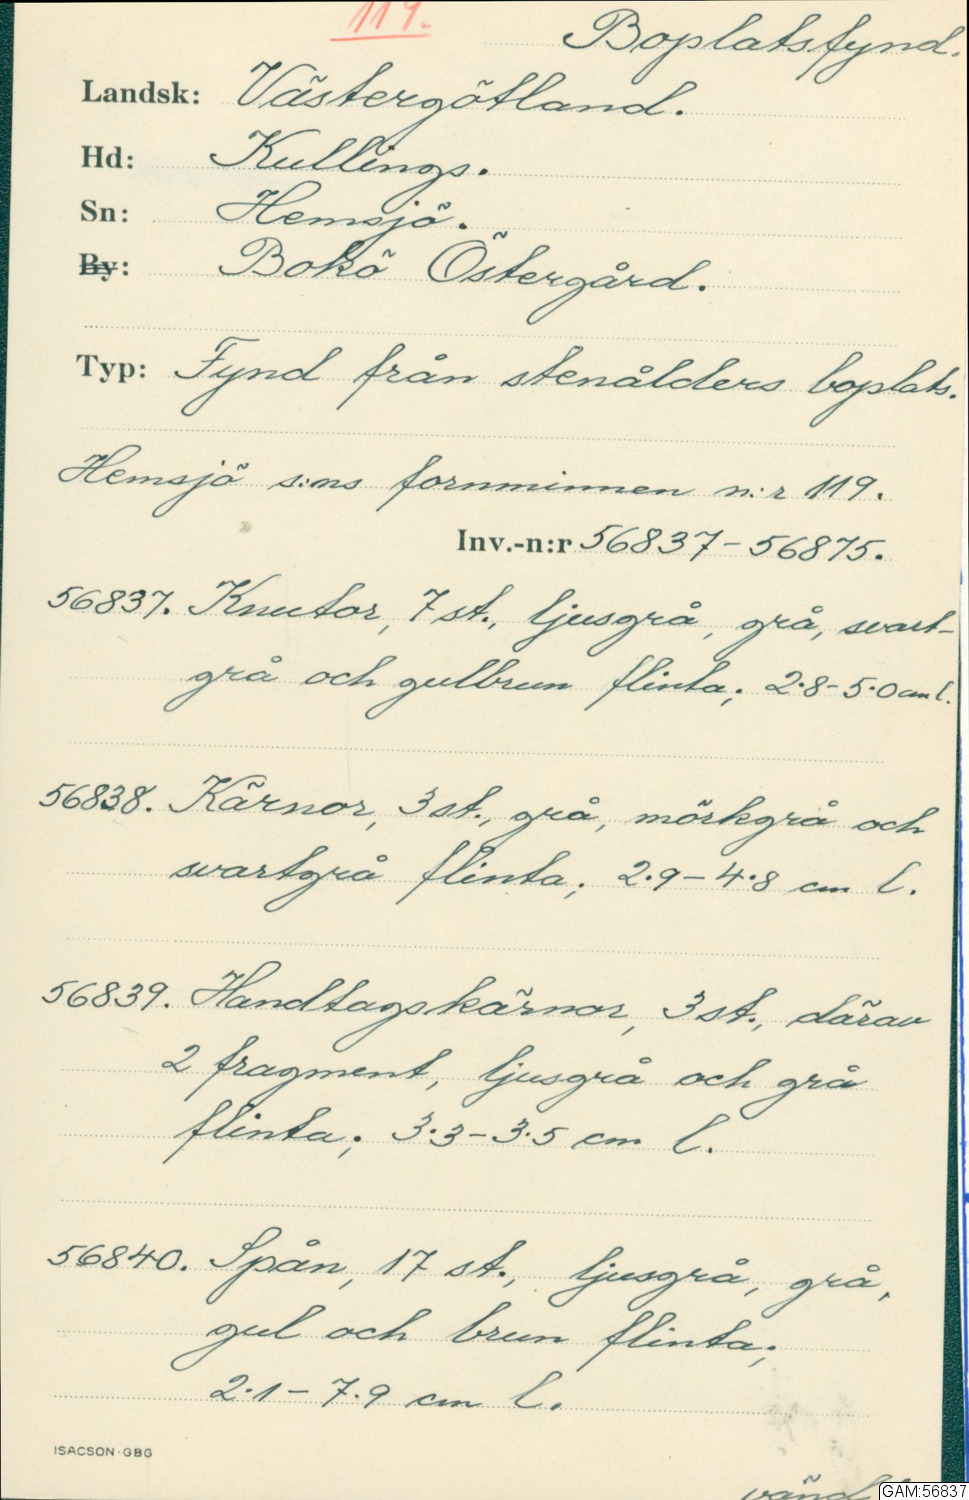 119.
Boplatsfynd.
Landsk: Västergötland.
Hd: Kullings.
Sn: Hemsjö.
By: Bokö Östergård.
Typ: Fynd från stenålders boplats.
Hemsjö s:ns fornminnen n:r 119.
Inv.-n:r 56837-56875.
56837. Knutor, 7 st., ljusgrå, grå, svart-
grå och gulbrun flinta; 2.8-5.0 cm l.
56838. Kärnor, 3 st., grå, mörkgrå och
svartgrå flinta; 2.9-4.8 cm l.
56839. Handtagskärnor, 3 st., därav
2 fragment, ljusgrå och grå
flinta; 3.3-3.5 cm l.
56840. Spån, 17 st., ljusgrå, grå,
gul och brun flinta;
2.1-7.9 cm l.
ISACSON·GBG
vänd!
GAM:56837